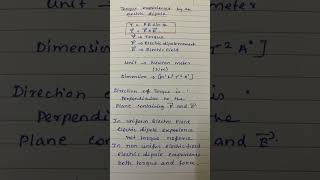 Torque experience by an
electric dipole
τ = PE sin θ
τ⃗ = P⃗ × E⃗
τ⃗ → Torque
P⃗ → Electric dipole moment
E⃗ → Electric field
Unit → Newton meter
(Nm)
Dimention → [M¹L²T⁻²A⁰]
Direction of Torque is :
Perpendicular to the
Plane containing P⃗ and E⃗.
In uniform Electric Field
electric dipole experience
net torque no force.
In non uniform electric field
Electric dipole
both torque and force.